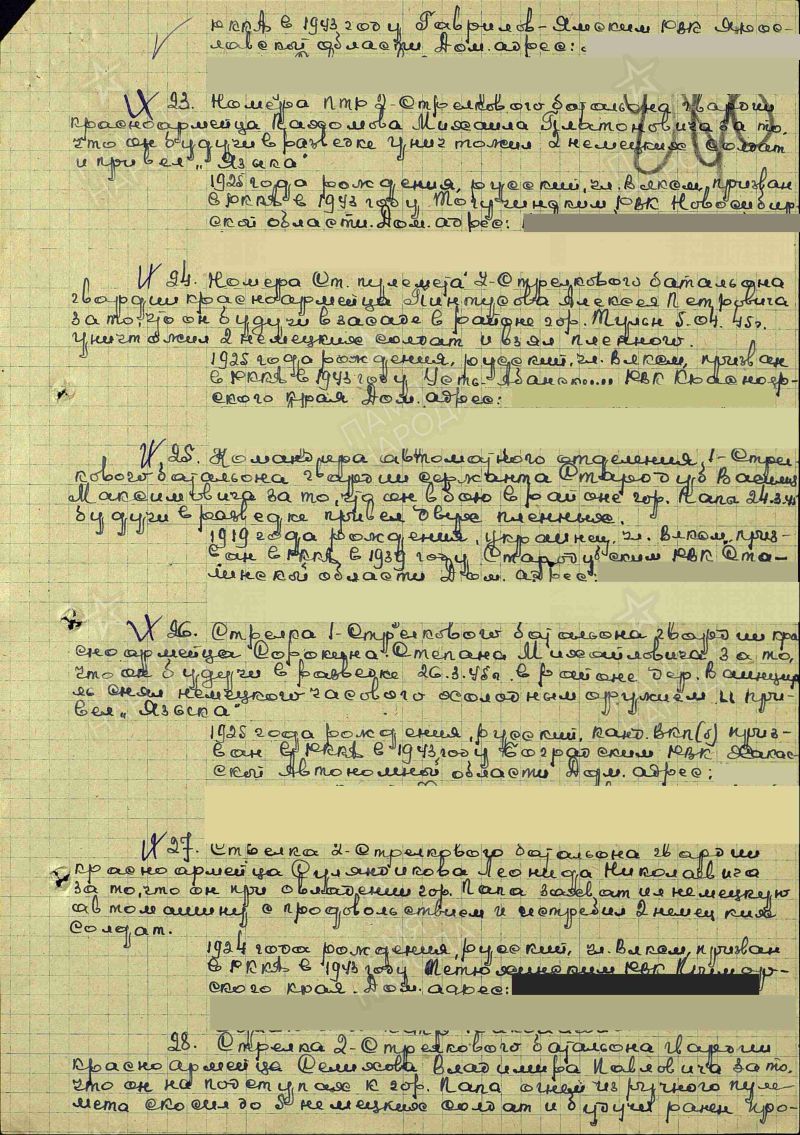 РККА в 1943 году Гаврилов-Ямским РВК Ярос-
лавской области Дом. адрес:
23. Номера ПТР 2-Стрелкового батальона гвардии
красноармейца Пахомова Михаила Платоновича за то,
что он будучи в разведке уничтожил 2 немецких солдат
и привел „Языка"
1925 года рождения, русский, чл. ВЛКСМ, призван
в РККА в 1943 году Тогучинским РВК Новосибир-
ской области. Дом. адрес:
24. Номера Ст. пулемета 2-Стрелкового батальона
гвардии красноармейца Пинтусова Алексея Петровича
за то, что он будучи в засаде в районе гор. Тульн 5.04.45г.
уничтожил 2 немецких солдат и взял пленного.
1925 года рождения, русский, чл. ВЛКСМ, призван
в РККА в 1943 году Усть-Абанск..... РВК Краснояр-
ского края Дом. адрес:
25. Командира автоматного отделения, 1-Стрел-
кового батальона гвардии сержанта Стародуб Василия
Максимовича за то, что он в бою в районе гор. Папа 24.3.45
будучи в разведке привел двух пленных.
1919 года рождения, украинец, чл. ВЛКСМ, приз-
ван в РККА в 1939 году Стародубским РВК Ста-
линской области Дом. адрес:
26. Стрелка 1-Стрелкового батальона гвардии кра
сноармейца Сорокина Степана Михайловича за то,
что он будучи в разведке 26.3.45г. в районе дер.
ль снял немецкого часового холодным оружием и при-
вел „Языка"
1925 года рождения, русский, канд. ВКП(б) приз-
ван в РККА в 1943 году Боградским РВК Хакас-
ской Автономной области Дом. адрес:
27. Стрелка 2-Стрелкового батальона гвардии
красноармейца Суляндикова Леонида Николаевича
за то, что он при овладении гор. Папа захватил немецкую
автомашину с продовольствием и истребил 2 немецких
солдат.
1924 года рождения, русский, чл. ВЛКСМ, призван
в РККА в 1943 году Тетюхинским РВК Примор-
ского края. Дом. адрес:
28. Стрелка 2-Стрелкового батальона гвардии
красноармейца Селихова Владимира Павловича за то,
что он на подступах к гор. Папа огнем из ручного пуле-
мета скосил до 8 немецких солдат и будучи ранен про-